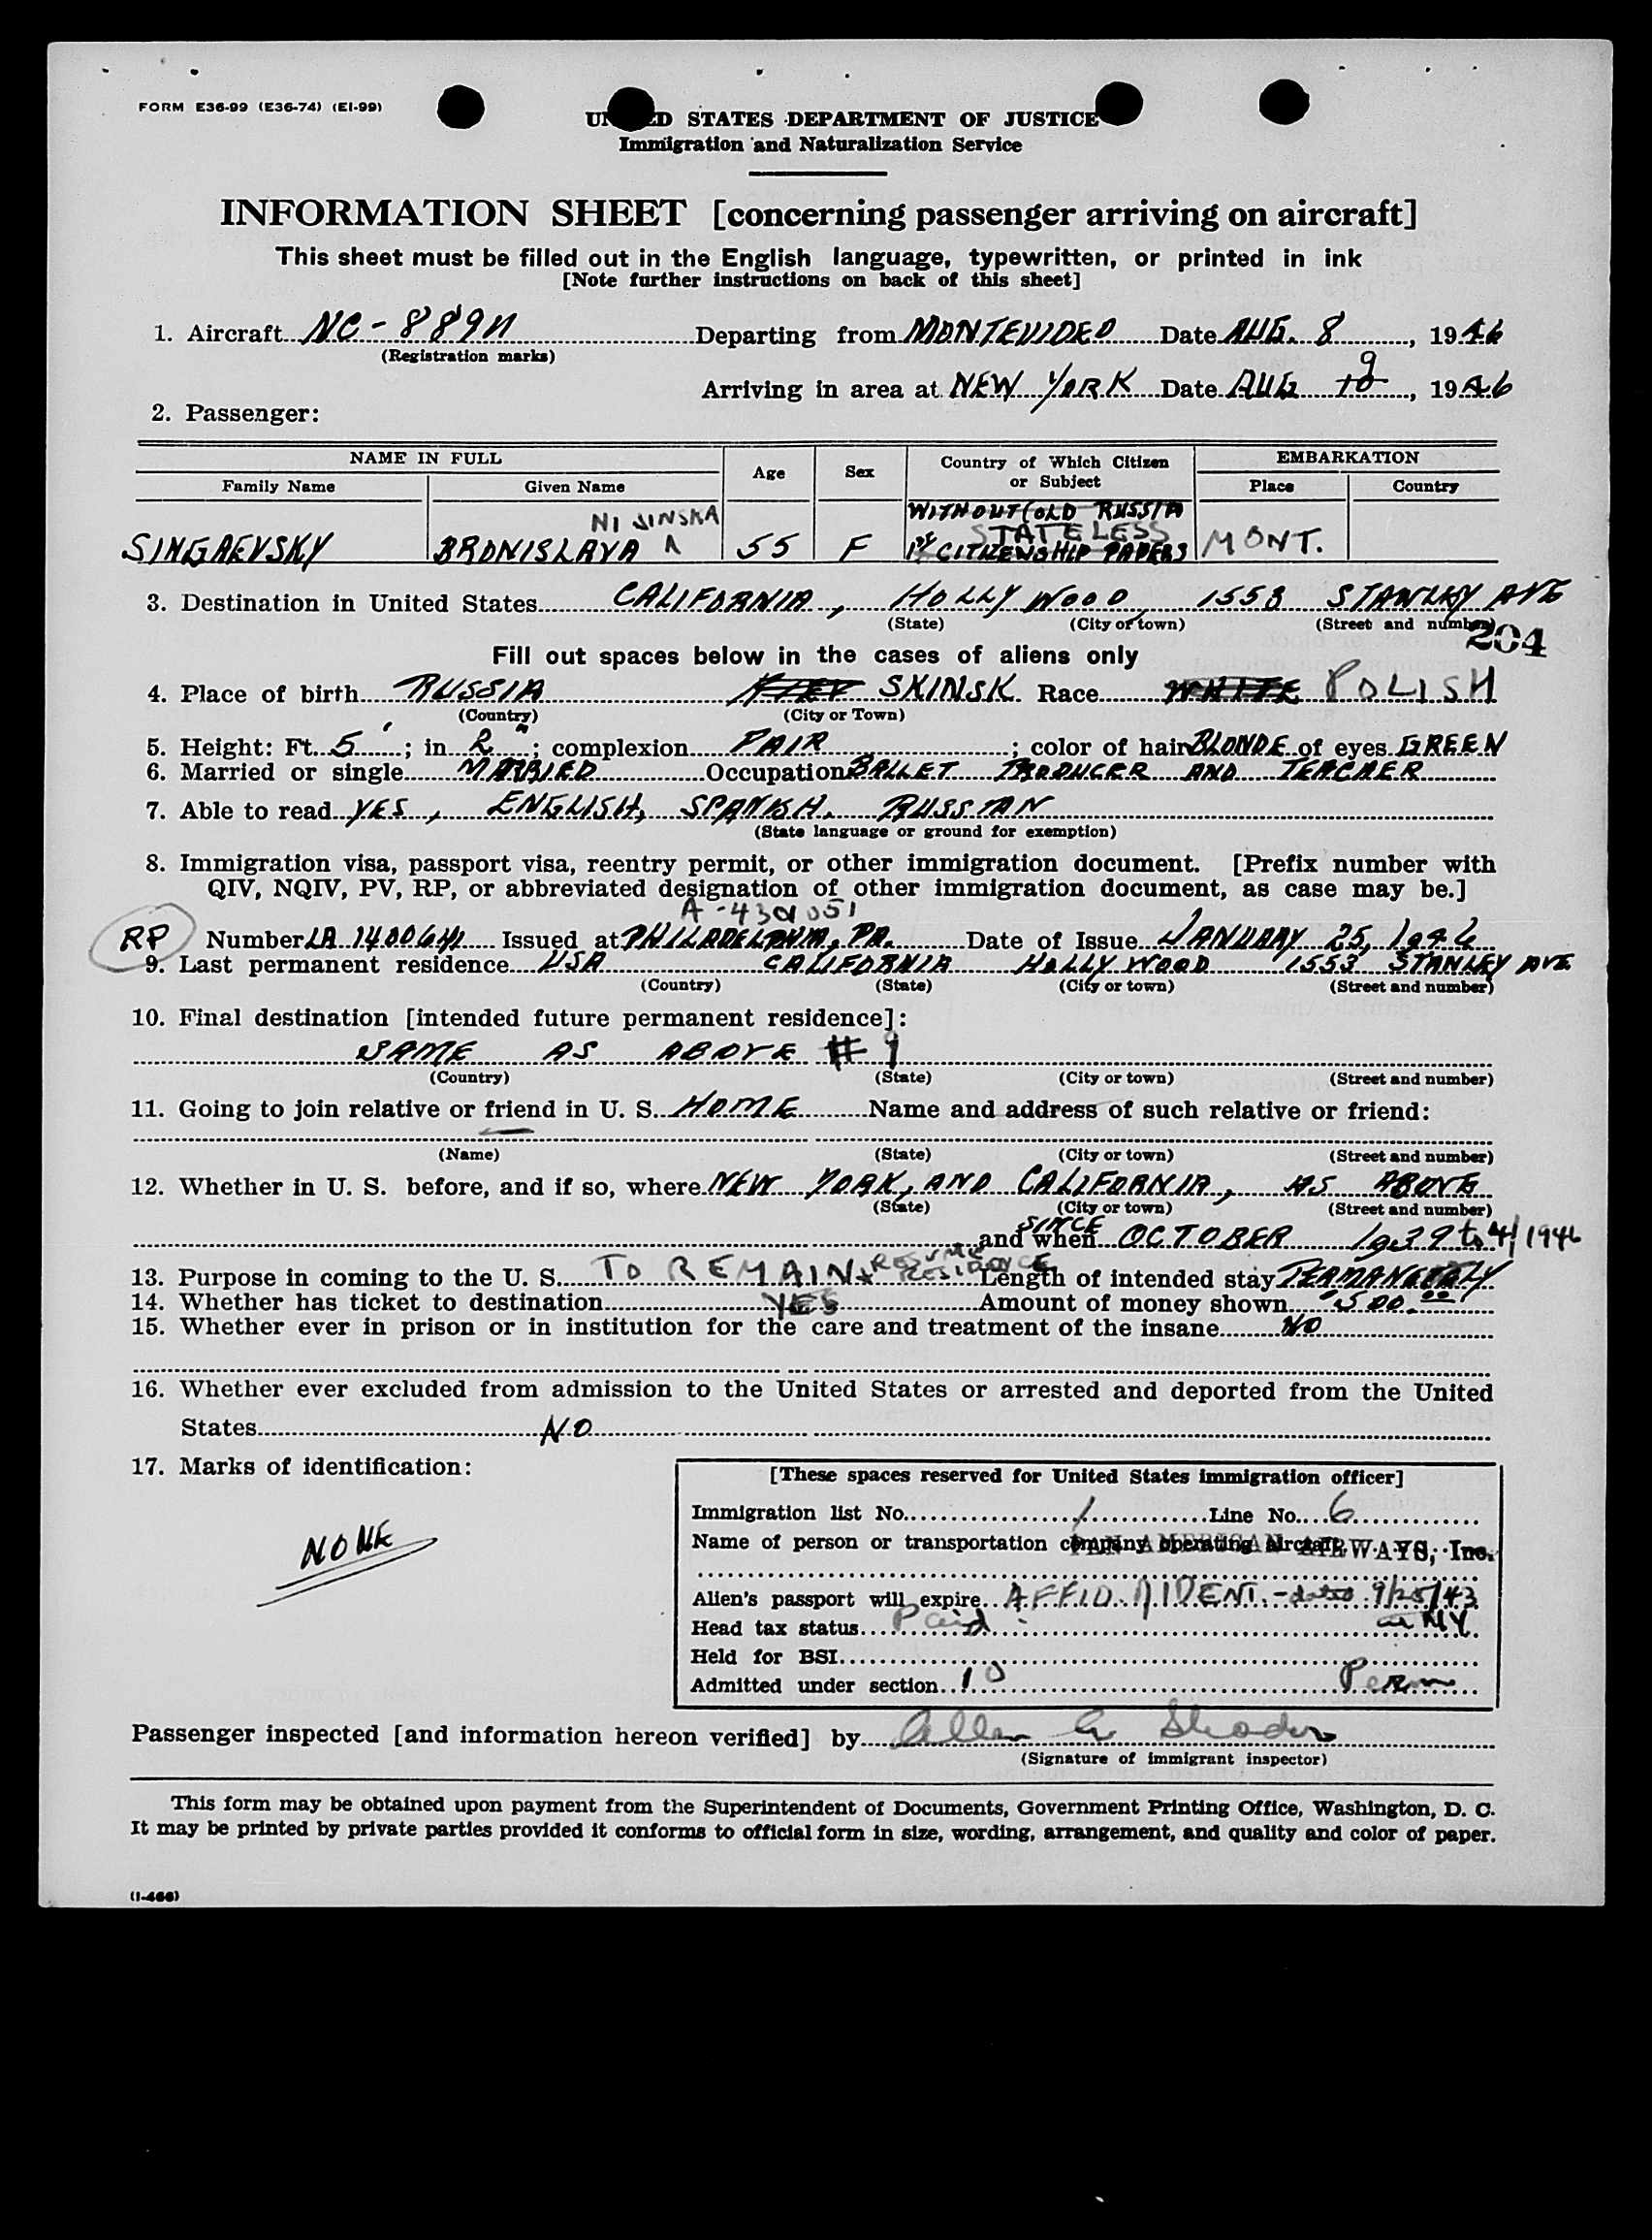 FORM E36-99 (E36-74) (EI-99)
UNITED STATES DEPARTMENT OF JUSTICE
Immigration and Naturalization Service
INFORMATION SHEET [concerning passenger arriving on aircraft]
This sheet must be filled out in the English language, typewritten, or printed in ink
[Note further instructions on back of this sheet]
1. Aircraft NC-889N Departing from MONTEVIDEO Date AUG. 8, 1946
(Registration marks)
9
Arriving in area at NEW YORK Date AUG 10, 1946
2. Passenger:
NAME IN FULL Age Sex Country of Which Citizen or Subject EMBARKATION
Family Name Given Name Place Country
NIJINSKA WITHOUT (OLD RUSSIA
STATELESS
SINGAEVSKY BRONISLAVA 55 F 1st CITIZENSHIP PAPERS MONT.
3. Destination in United States CALIFORNIA, HOLLYWOOD, 1553 STANLEY AVE
(State) (City or town) (Street and number)
204
Fill out spaces below in the cases of aliens only
4. Place of birth RUSSIA KIEV SKINSK Race WHITE POLISH
(Country) (City or Town)
5. Height: Ft. 5'; in 2"; complexion FAIR; color of hair BLONDE of eyes GREEN
6. Married or single MARRIED Occupation BALLET PRODUCER AND TEACHER
7. Able to read YES, ENGLISH, SPANISH, RUSSIAN
(State language or ground for exemption)
8. Immigration visa, passport visa, reentry permit, or other immigration document. [Prefix number with
QIV, NQIV, PV, RP, or abbreviated designation of other immigration document, as case may be.]
A-4301051
RP Number LA 1400641 Issued at PHILADELPHIA, PA. Date of Issue JANUARY 25, 1946
9. Last permanent residence USA CALIFORNIA HOLLYWOOD 1553 STANLEY AVE
(Country) (State) (City or town) (Street and number)
10. Final destination [intended future permanent residence]:
SAME AS ABOVE # 9
(Country) (State) (City or town) (Street and number)
11. Going to join relative or friend in U. S. HOME Name and address of such relative or friend:
(Name) (State) (City or town) (Street and number)
12. Whether in U. S. before, and if so, where NEW YORK, AND CALIFORNIA, AS ABOVE
(State) (City or town) (Street and number)
SINCE
and when OCTOBER 1939 to 4/1946
13. Purpose in coming to the U. S. TO REMAIN & RESUME RESIDENCE Length of intended stay PERMANENTLY
14. Whether has ticket to destination YES Amount of money shown $500.00
15. Whether ever in prison or in institution for the care and treatment of the insane NO
16. Whether ever excluded from admission to the United States or arrested and deported from the United
States NO
17. Marks of identification:
NONE
[These spaces reserved for United States immigration officer]
Immigration list No. 1 Line No. 6
Name of person or transportation company operating aircraft PAN AMERICAN AIRWAYS, Inc.
Alien's passport will expire AFFID. IDENT. - dated 9/25/43
Head tax status Paid at NY.
Held for BSI
Admitted under section 10 Perm
Passenger inspected [and information hereon verified] by
(Signature of immigrant inspector)
This form may be obtained upon payment from the Superintendent of Documents, Government Printing Office, Washington, D. C.
It may be printed by private parties provided it conforms to official form in size, wording, arrangement, and quality and color of paper.
(I-466)